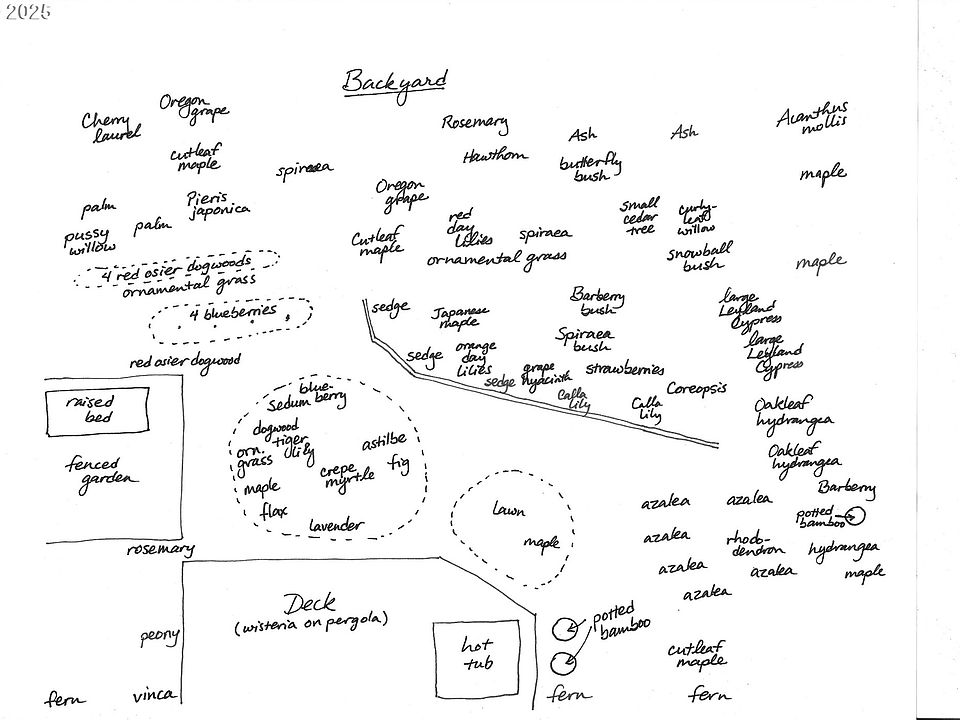 2025
Backyard
Cherry
laurel
Oregon
grape
cutleaf
maple
spiraea
palm
palm
Pieris
japonica
pussy
willow
4 red osier dogwoods
ornamental grass
4 blueberries
red osier dogwood
Rosemary
Hawthorn
Oregon
grape
Cutleaf
maple
red
day
lilies
spiraea
ornamental grass
Ash
butterfly
bush
Ash
small
cedar
tree
curly-
leaf
willow
snowball
bush
Acanthus
mollis
maple
maple
sedge
Japanese
maple
Barberry
bush
Spiraea
bush
large
Leyland
Cypress
large
Leyland
Cypress
sedge
orange
day
lilies
sedge
grape
hyacinth
strawberries
Calla
lily
Calla
lily
Coreopsis
Oakleaf
hydrangea
Oakleaf
hydrangea
raised
bed
fenced
garden
blue-
Sedum berry
dogwood
tiger
lily
orn.
grass
astilbe
crepe
myrtle
fig
maple
flax
lavender
lawn
maple
azalea
azalea
Barberry
potted
bamboo
azalea
rhodo-
dendron
hydrangea
azalea
azalea
maple
azalea
rosemary
Deck
(wisteria on pergola)
hot
tub
potted
bamboo
peony
cutleaf
maple
fern
vinca
fern
fern